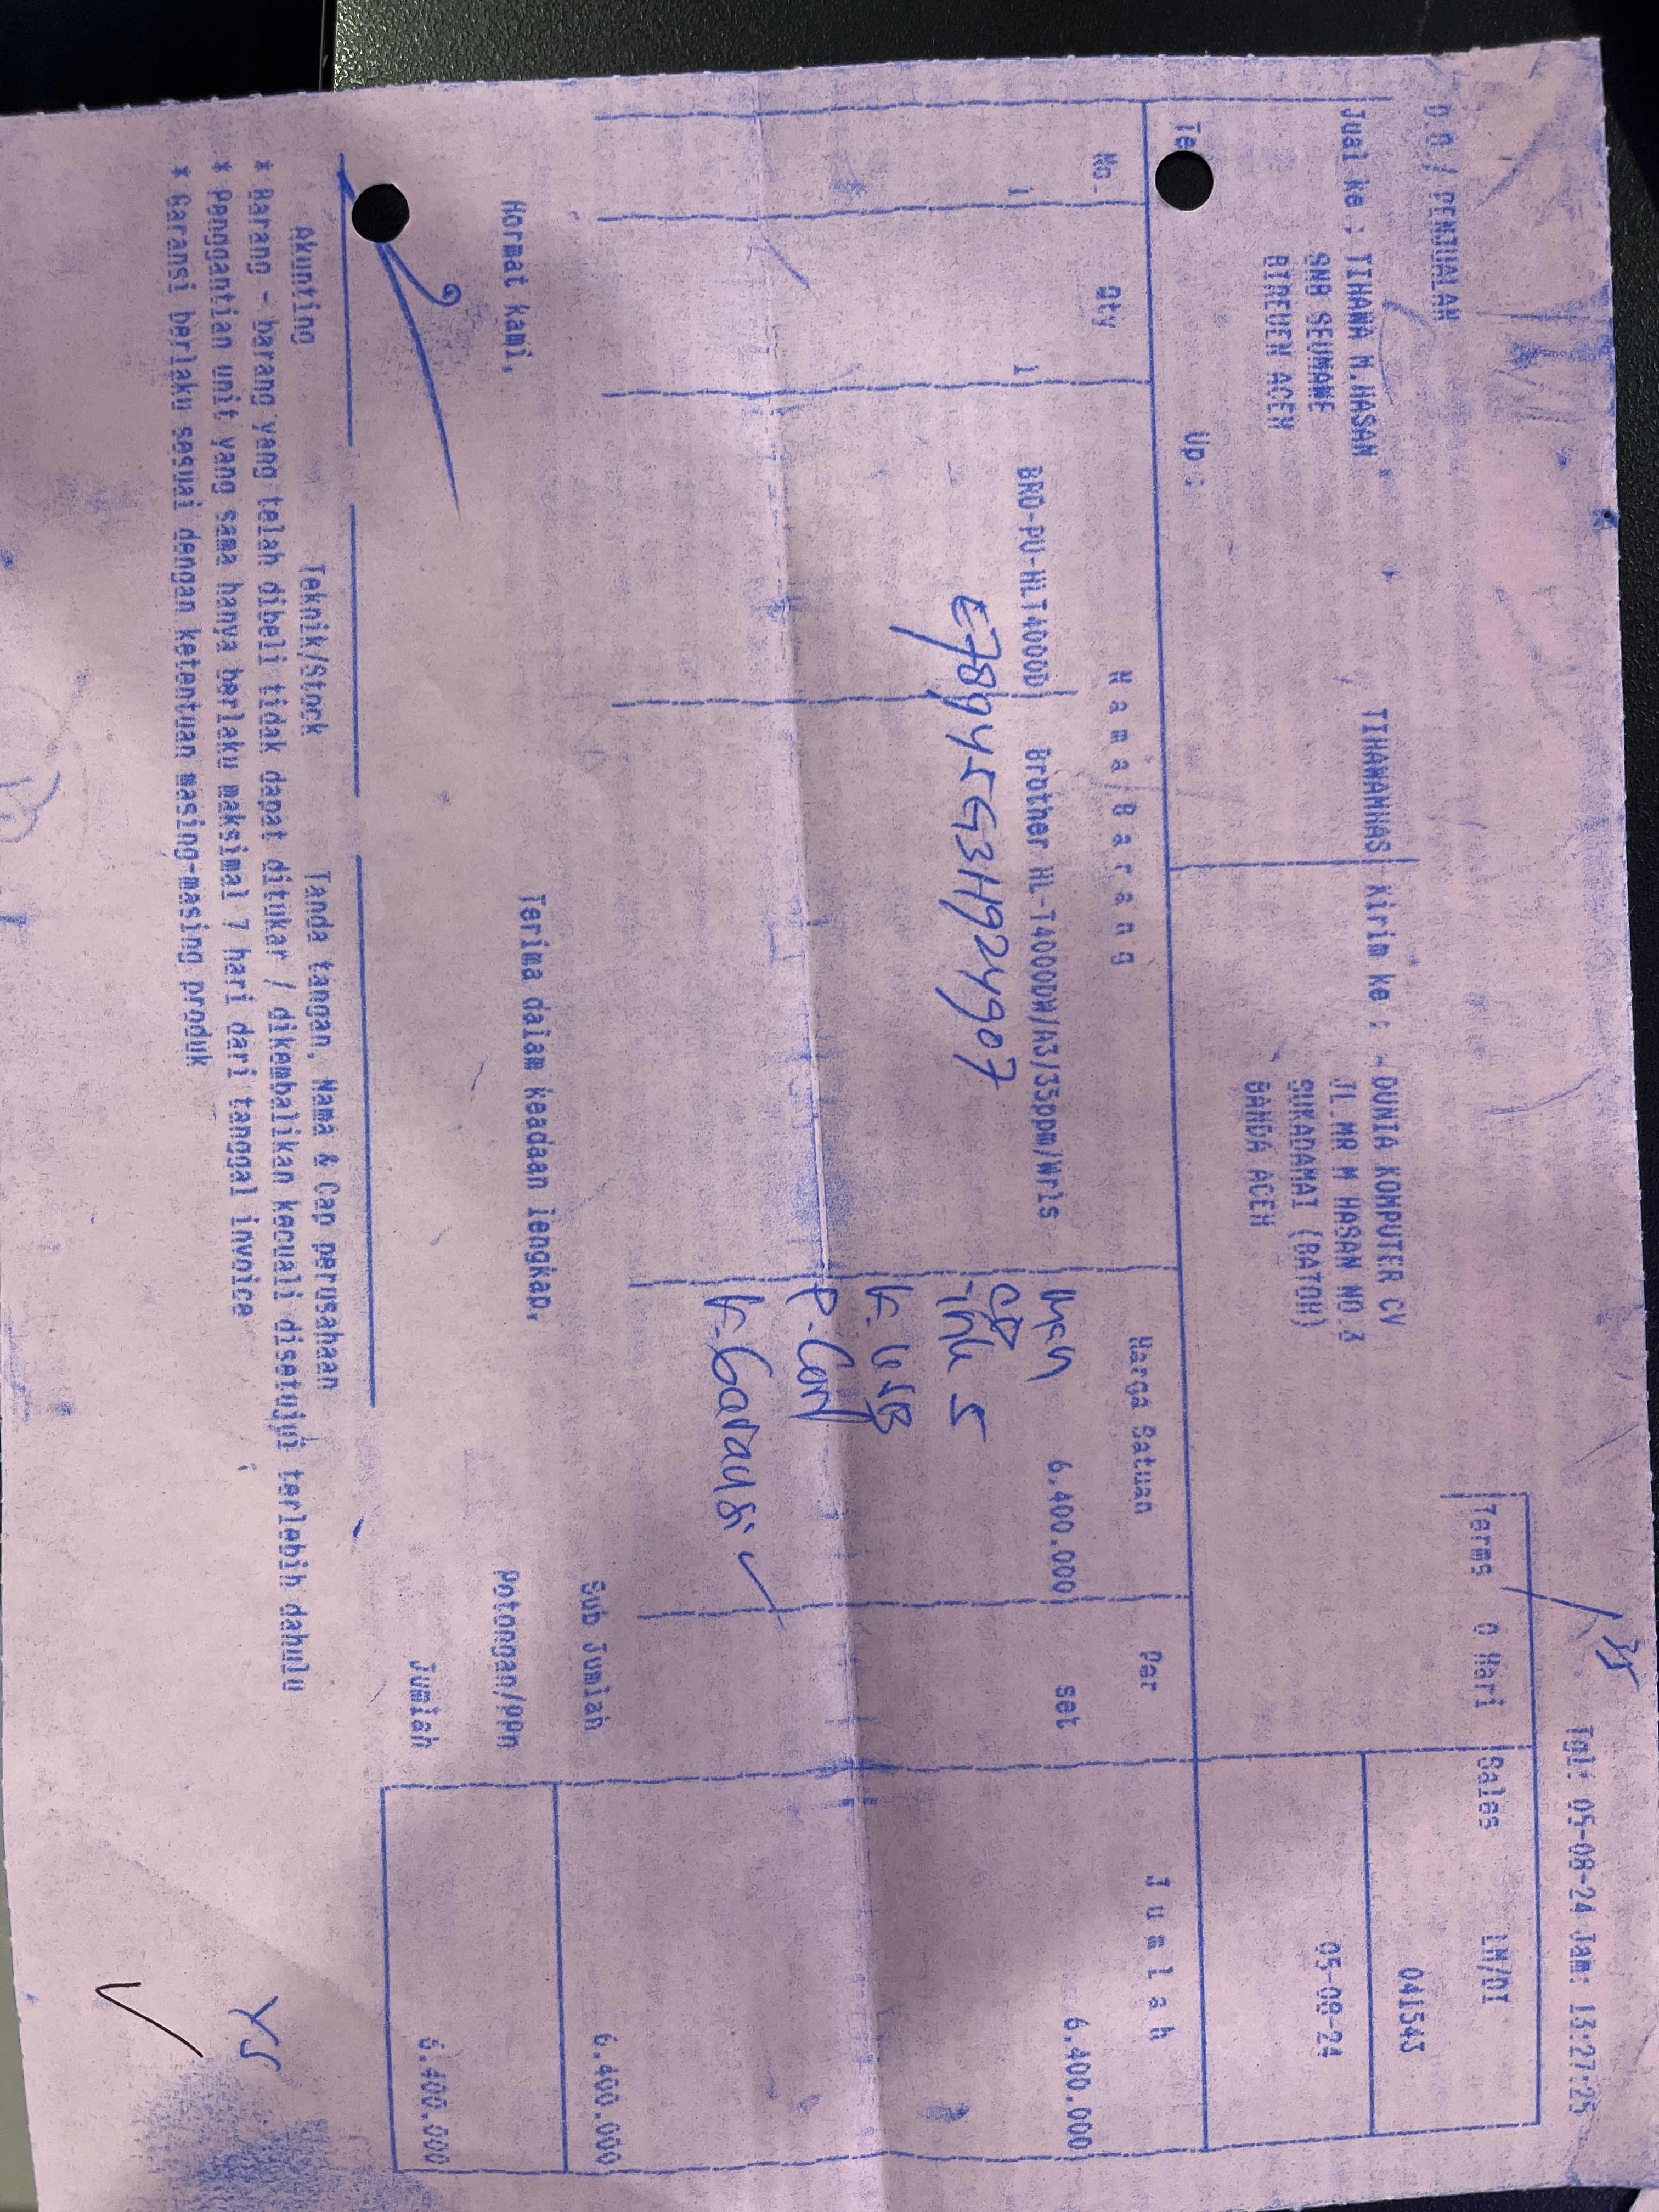 Tgl: 05-08-24 Jam: 13:27:25
D.O / PENJUALAN
Terms 0 Hari Sales LM/DI
Jual ke : TIHAWA M.HASAN TIHAWAMHAS Kirim ke : DUNIA KOMPUTER CV 041543
SNB SEUMAWE JL.MR M HASAN NO.3 05-08-24
BIREUEN ACEH SUKADAMAI (BATOH)
BANDA ACEH
Up :
No. Qty N a m a B a r a n g Harga Satuan Per J u m l a h
1 1 BRO-PU-HLT4000D Brother HL-T4000DW/A3/35ppm/Wrls 6.400.000 set 6.400.000
Man
CD
E78945G3H924907 ink 5
K. USB
P. Cord
K. Garansi ✓
Sub Jumlah 6.400.000
Hormat kami, Terima dalam keadaan lengkap,
Potongan/PPn
Jumlah 6.400.000
Akunting Teknik/Stock Tanda tangan, Nama & Cap perusahaan
* Barang - barang yang telah dibeli tidak dapat ditukar / dikembalikan kecuali disetujui terlebih dahulu
* Penggantian unit yang sama hanya berlaku maksimal 7 hari dari tanggal invoice
* Garansi berlaku sesuai dengan ketentuan masing-masing produk